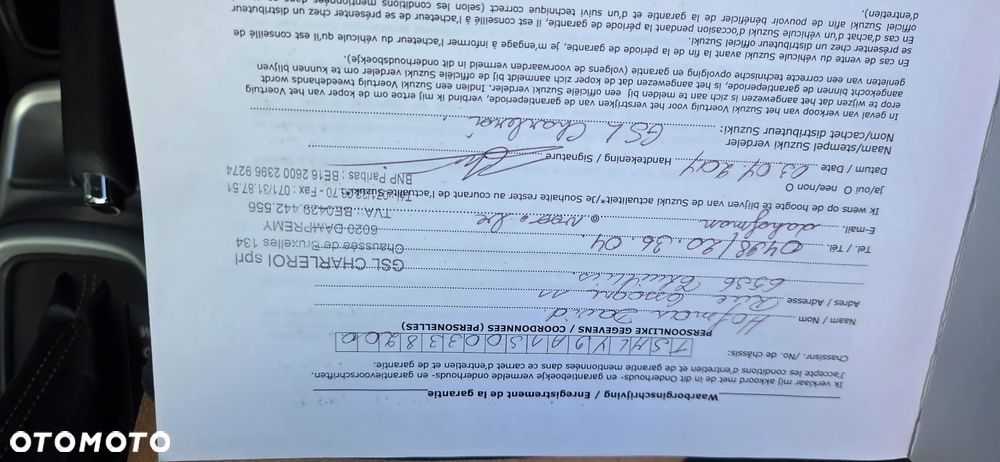 Waarborginschrijving / Enregistrement de la garantie
Ik verklaar mij akkoord met de in dit Onderhouds- en garantieboekje vermelde onderhouds- en garantievoorschriften.
J'accepte les conditions d'entretien et de garantie mentionnées dans ce carnet d'entretien et de garantie.
Chassisnr. /No. de châssis:
PERSOONLIJKE GEGEVENS / COORDONNEES (PERSONELLES)
Naam / Nom Hofman David
Adres / Adresse
GSL CHARLEROI sprl
Chaussée de Bruxelles 134
6020 DAMPREMY
TVA : BE0429.442.556
Tel. / Tél. 0498/20.36.04
E-mail dahofman @
Ik wens op de hoogte te blijven van de Suzuki actualiteit*/Je souhaite rester au courant de l'actualité Suzuki*:
Fax : 071/31.87.51
BNP Paribas : BE16 2600 2396 9274
ja/oui O nee/non O
Datum / Date 23.04.2014 Handtekening / Signature
Naam/stempel Suzuki verdeler
Nom/cachet distributeur Suzuki: GSL Charleroi
In geval van verkoop van het Suzuki Voertuig voor het verstrijken van de garantieperiode, verbind ik mij ertoe om de koper van het Voertuig
erop te wijzen dat het aangewezen is zich aan te melden bij een officiële Suzuki verdeler. Indien een Suzuki Voertuig tweedehands wordt
aangekocht binnen de garantieperiode, is het aangewezen dat de koper zich aanmeldt bij de officiële Suzuki verdeler om te kunnen blijven
genieten van een correcte technische opvolging en garantie (volgens de voorwaarden vermeld in dit onderhoudsboekje).
En cas de vente du véhicule Suzuki avant la fin de la période de garantie, je m'engage à informer l'acheteur du véhicule qu'il est conseillé de
se présenter chez un distributeur officiel Suzuki.
En cas d'achat d'un véhicule Suzuki d'occasion pendant la période de garantie, il est conseillé à l'acheteur de se présenter chez un distributeur
officiel Suzuki afin de pouvoir bénéficier de la garantie et d'un suivi technique correct (selon les conditions mentionnées dans
d'entretien).
OTOMOTO